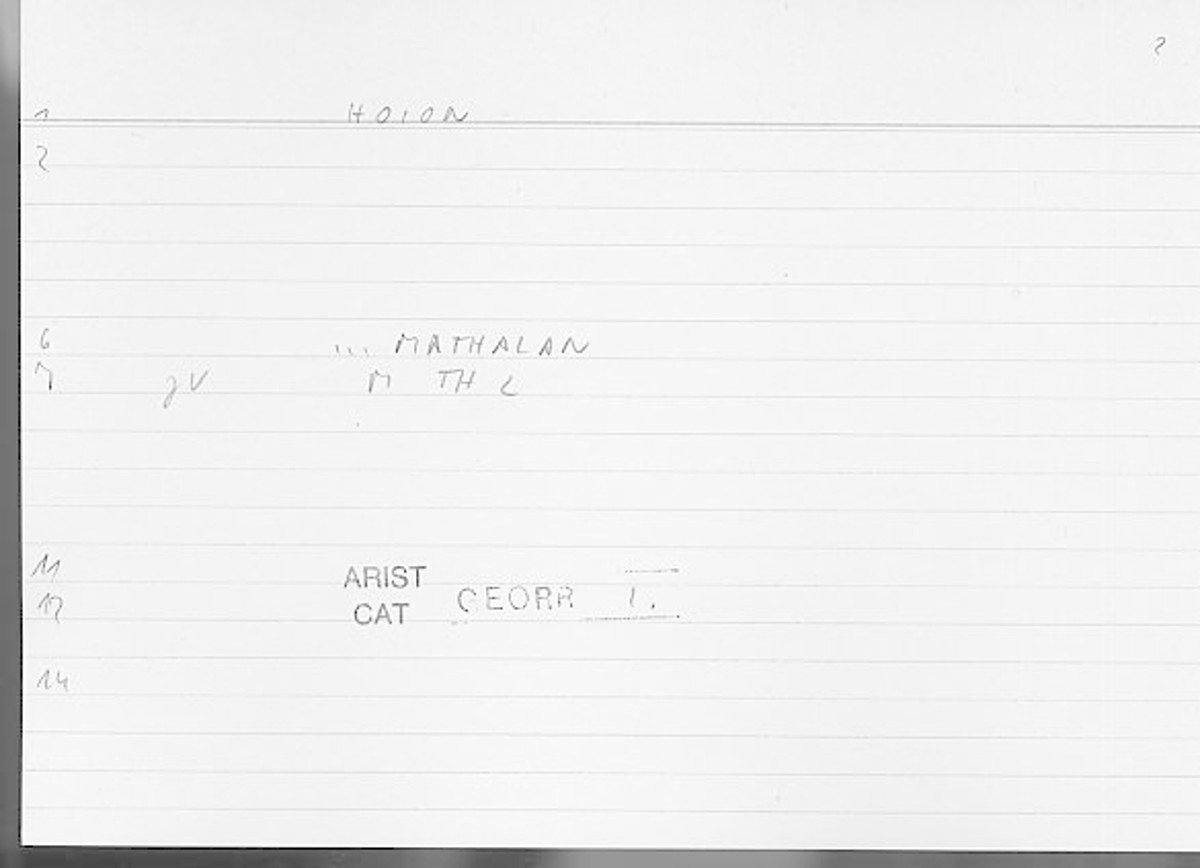 2
1 HOION
2
6 ... MATHALAN
7 gV M TH L
11 ARIST
12 CAT GEORR 1.
14